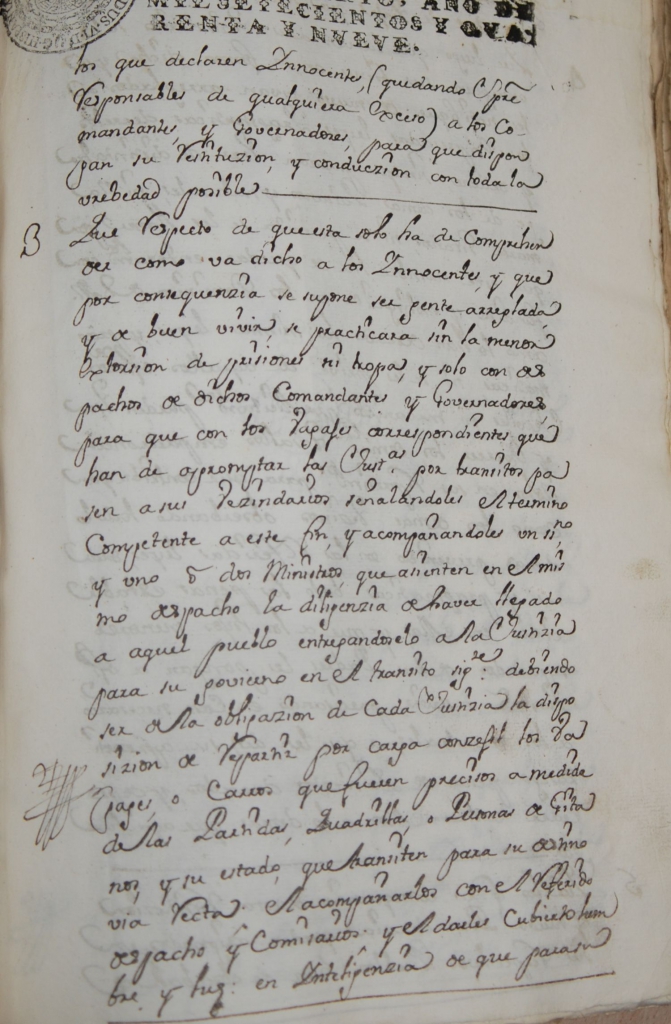 MIL SETECIENTOS Y QUA
RENTA Y NVEVE.
los que declaren Innocentes, (quedando spre
responsables de qualquiera exceso) a los Co-
mandantes, y Governadores, para que dispon
gan su restituzion, y conduczion con toda la
vrebedad posible
3 Que respecto de que esta solo ha de Comprehen
der como va dicho a los Innocentes, y que
por consequenzia se supone ser gente arreglada,
y de buen vivir, se practicara sin la menor
extorsion de prisiones ni tropa, y solo con des
pachos de dichos Comandantes y Governadores,
para que con los vagajes correspondientes que
han de apromptar las Just.as por transitos pa
sen a sus vezindarios señalandoles el termino
Competente a este fin, y acompañandoles un
y uno o dos Ministros, que asienten en el mis
mo despacho la diligenzia de haver llegado
a aquel pueblo entregandoselo a la Justizia
para su govierno en el transito sig.te: debiendo
ser de la obligazion de Cada Justizia la dispo
sizion de repartir por carga conzejil los va
gages, o Carros que fueren precisos a medida
de las Partidas, Quadrillas, o Personas de Gita
nos, y su estado, que transiten para su destino
via recta. El acompañarlos con el referido
despacho y Comisarios, y el darles Cubierto lum
bre, y lug: en Inteligenzia de que para su